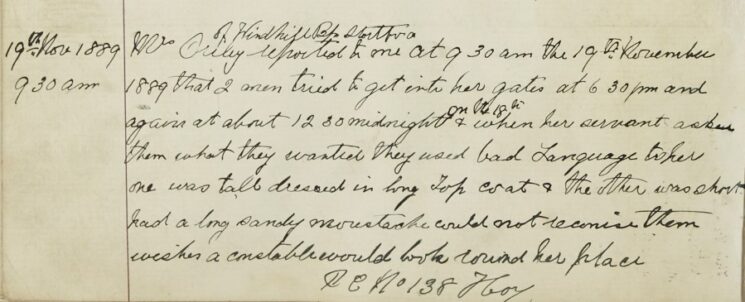 of Windhill Bp Stortford
19th Nov 1889 Mrs reported to me at 9 30 am the 19th November
9 30 am 1889 that 2 men tried to get into her gates at 6 30 pm and
on the 18th
again at about 12 30 midnight & when her servant asked
them what they wanted they used bad Language to her
one was tall dressed in long Top coat & the other was short
had a long sandy moustache could not reconise them
wishes a constable would look round her place
P C No 138 Hoy